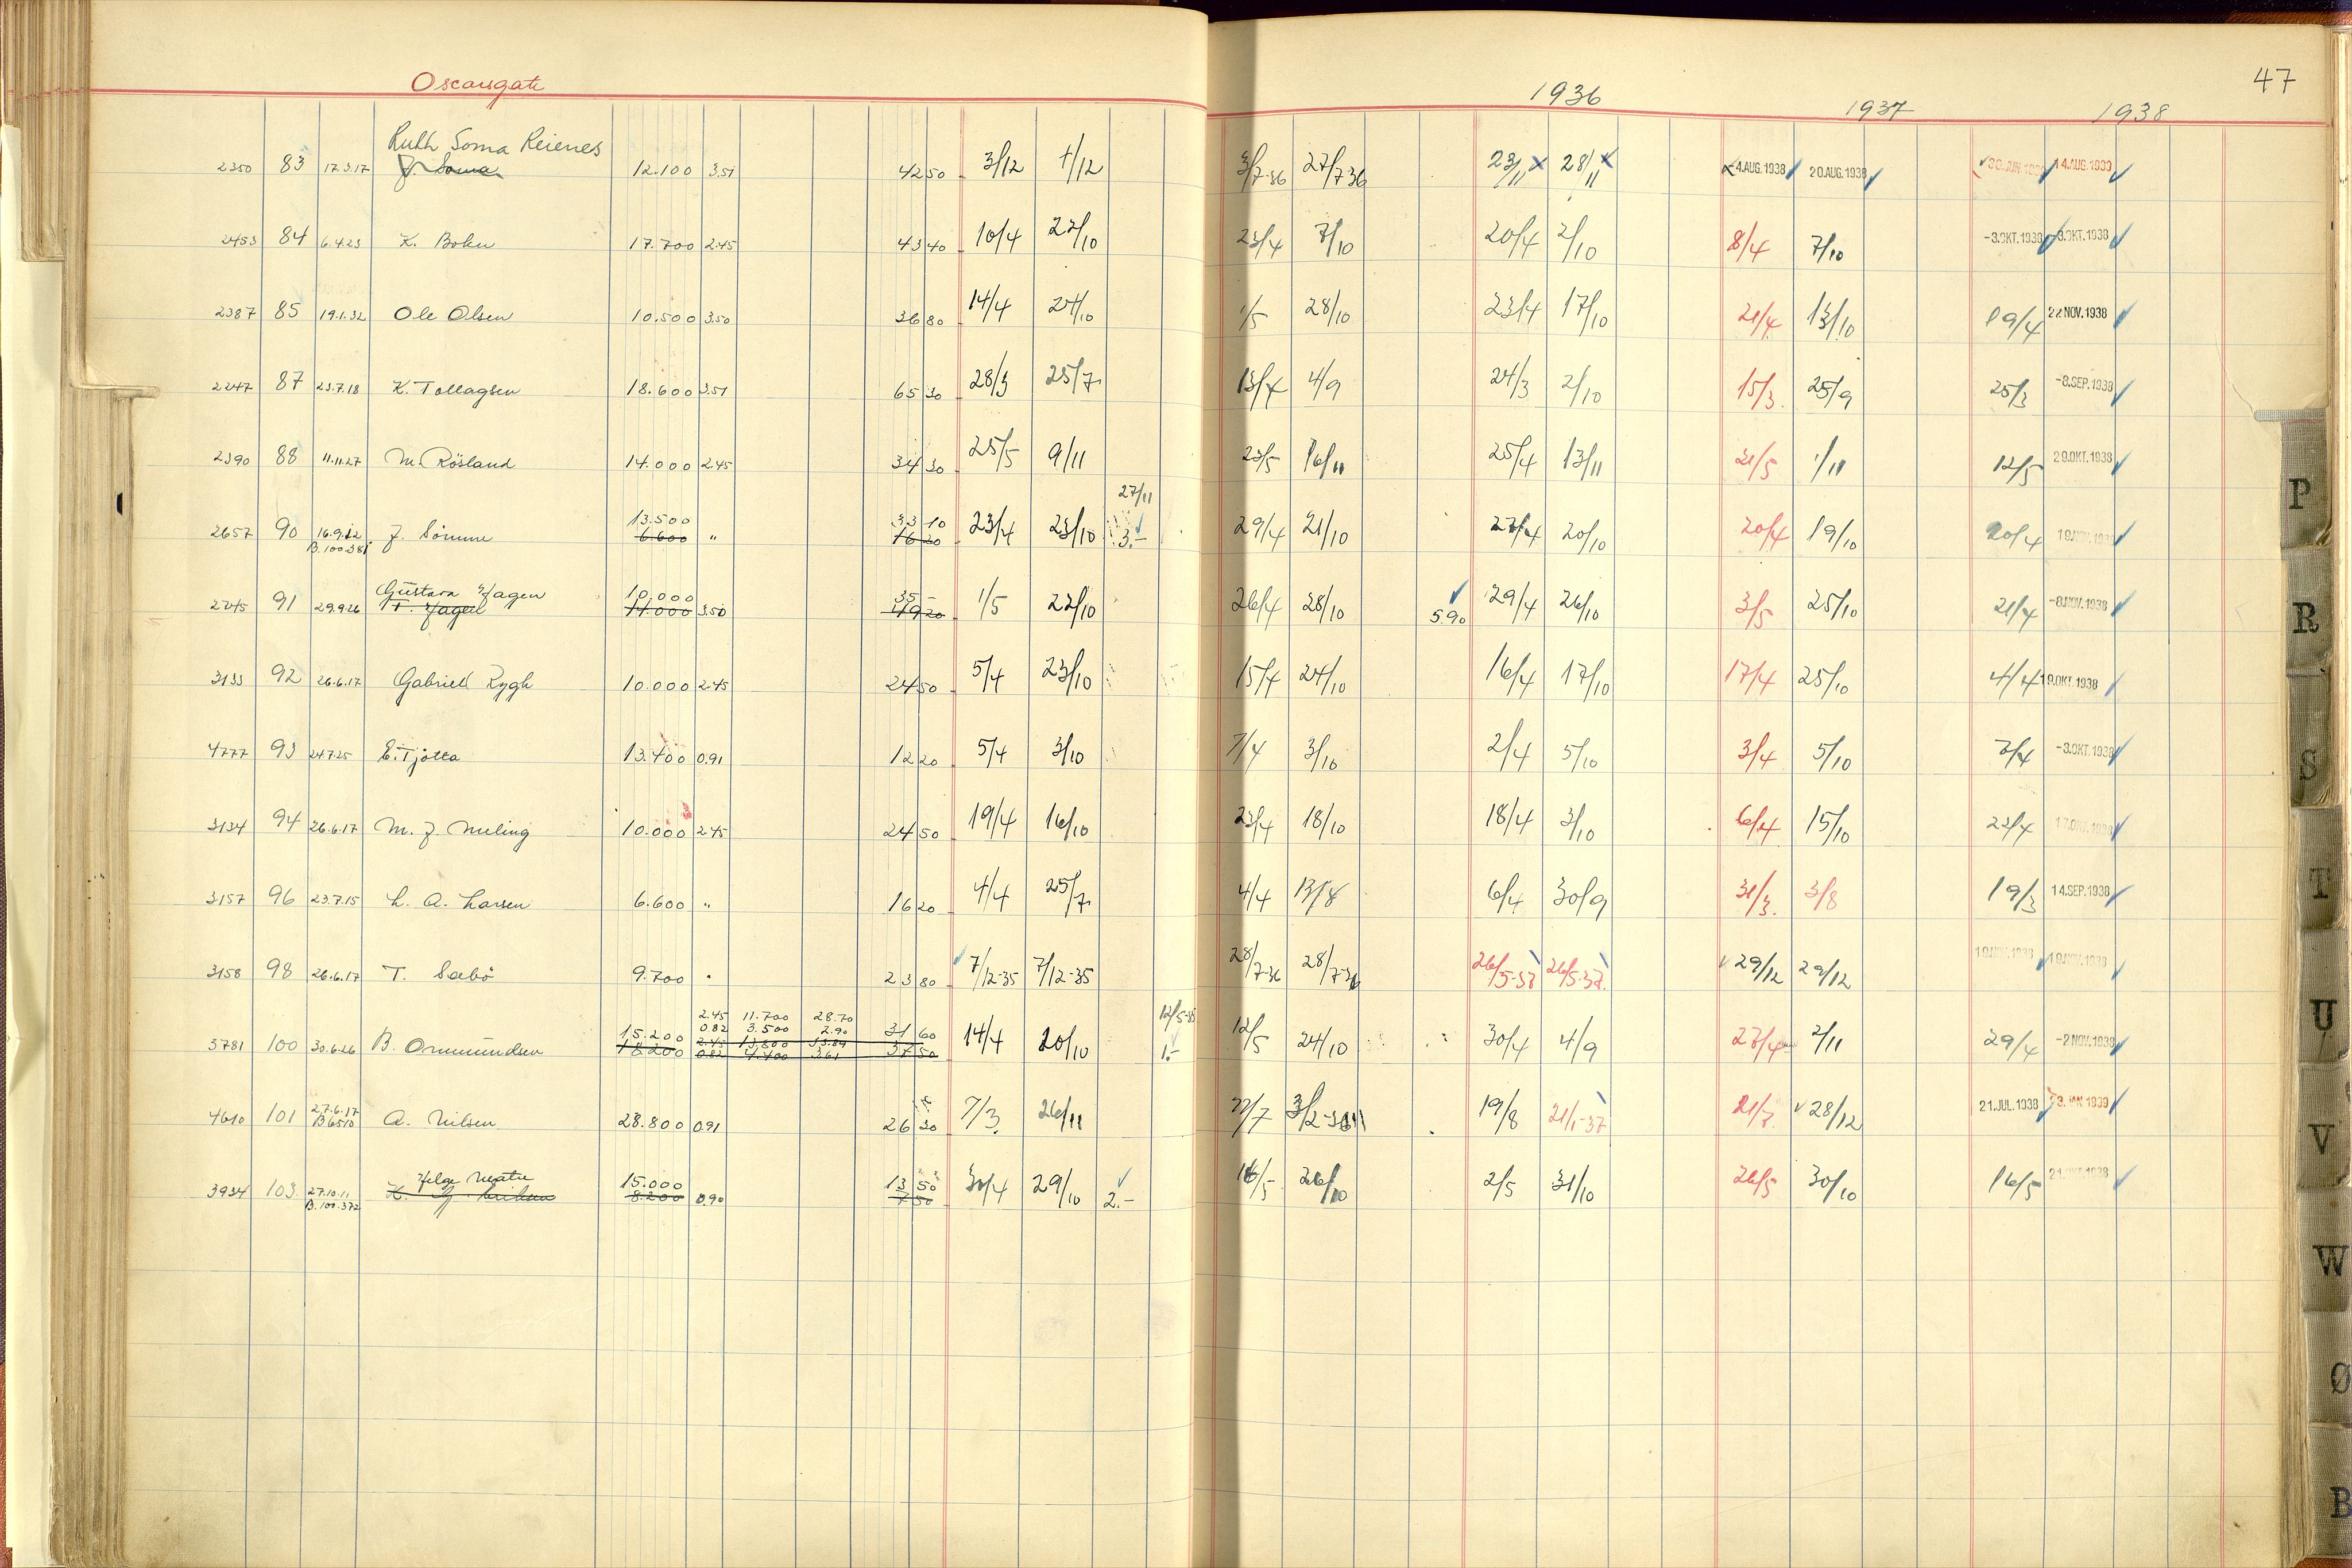 47
Oscarsgate 1936 1937 1938
Ruth Soma Reienes
2350 83 17.3.17 J. Soma 12.100 3.51 42 50 3/12 1/12 3/7-36 27/7-36 23/11 28/11 -4.AUG.1938 20.AUG.1938 14.AUG.1939
2453 84 6.4.23 K. Bohn 17.700 2.45 43 40 10/4 22/10 23/4 7/10 20/4 2/10 8/4 7/10 -3.OKT.1938 -3.OKT.1938
2387 85 19.1.32 Ole Olsen 10.500 3.50 36 80 14/4 24/10 1/5 28/10 23/4 17/10 21/4 13/10 19/4 22 NOV.1938
2247 87 23.7.18 K. Tollagsen 18.600 3.51 65 30 28/3 25/7 13/4 4/9 24/3 2/10 15/3 25/9 25/3 -8.SEP.1938
2390 88 11.11.27 M. Rösland 14.000 2.45 34 30 25/5 9/11 23/5 16/11 25/4 13/11 21/5 1/11 12/5 29.OKT.1938
13.500 33 10 27/11
2657 90 16.9.12 J. Sömme 6.600 " 16 20 23/4 23/10 3.- 29/4 21/10 27/4 20/10 20/4 19/10 20/4 19.NOV.1938
B.100381
Gustava Hagen 10.000 35 -
2245 91 29.9.26 T. Hagen 14.000 3.50 49 20 1/5 22/10 26/4 28/10 5.90 29/4 26/10 3/5 25/10 21/4 -8.NOV.1938
3133 92 26.6.17 Gabriel Rygh 10.000 2.45 24 50 5/4 23/10 15/4 24/10 16/4 17/10 17/4 25/10 4/4 19.OKT.1938
4777 93 24.7.25 E. Tjötta 13.400 0.91 12 20 5/4 3/10 7/4 3/10 2/4 5/10 3/4 5/10 7/4 -3.OKT.1938
3134 94 26.6.17 M. J. Meling 10.000 2.45 24 50 19/4 16/10 23/4 18/10 18/4 3/10 6/4 15/10 23/4 17.OKT.1938
3157 96 23.7.15 L. A. Larsen 6.600 " 16 20 4/4 25/7 4/4 13/8 6/4 30/9 31/3 3/8 19/3 14.SEP.1938
3158 98 26.6.17 T. Sæbö 9.700 " 23 80 7/12-35 7/12-35 28/7-36 28/7-36 26/5-37 26/5-37 29/12 29/12 19.NOV.1938 19.NOV.1938
2.45 11.700 28.70 12/5-35
15.200 0.82 3.500 2.90 31 60
3781 100 30.6.26 B. Ommundsen 18.200 2.45 13.800 33.89 37 50 14/4 20/10 1.- 12/5 24/10 30/4 4/9 27/4 2/11 29/4 -2 NOV.1938
0.82 4.400 3.61
27.6.17
4610 101 B6510 A. Nilsen 28.800 0.91 26 30 7/3 26/11 22/7 3/2-36 19/8 21/1-37 21/7 28/12 21.JUL.1938 23.JAN 1939
Helge Meatie 15.000 13 50
3934 103 27.10.11 8.200 0.90 7 50 30/4 29/10 2.- 16/5 26/10 2/5 31/10 26/5 30/10 16/5 21.OKT.1938
B.100.372
P
R
S
T
U
V
W
Ø
B